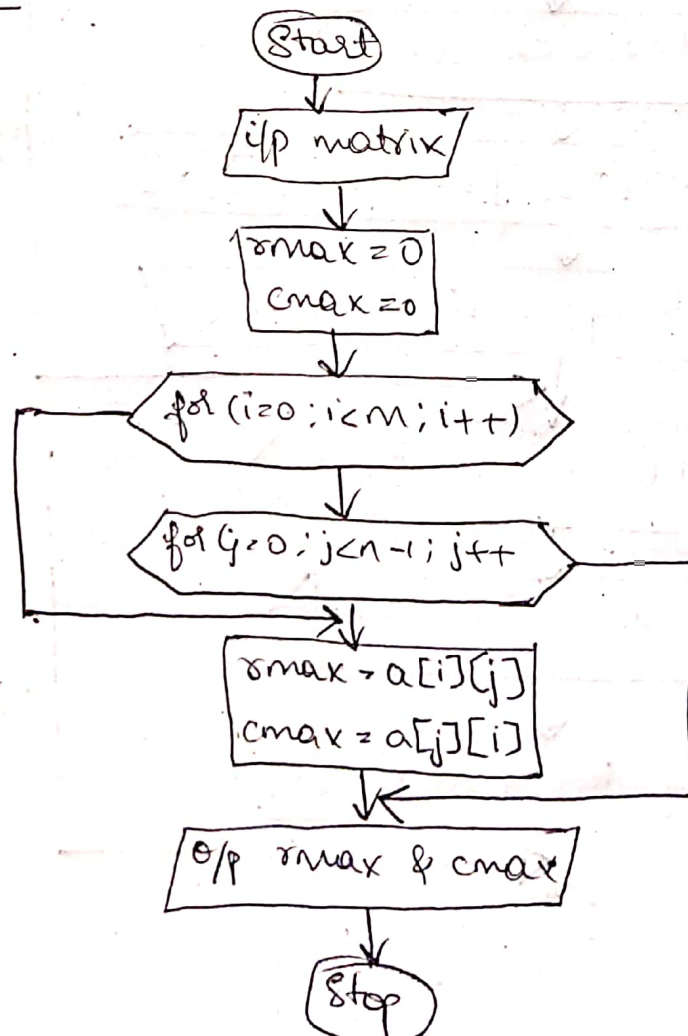 Start
i/p matrix
rmax = 0
cmax = 0
for (i=0; i<m; i++)
for (j=0; j<n-1; j++
rmax = a[i][j]
cmax = a[j][i]
o/p rmax & cmax
Stop